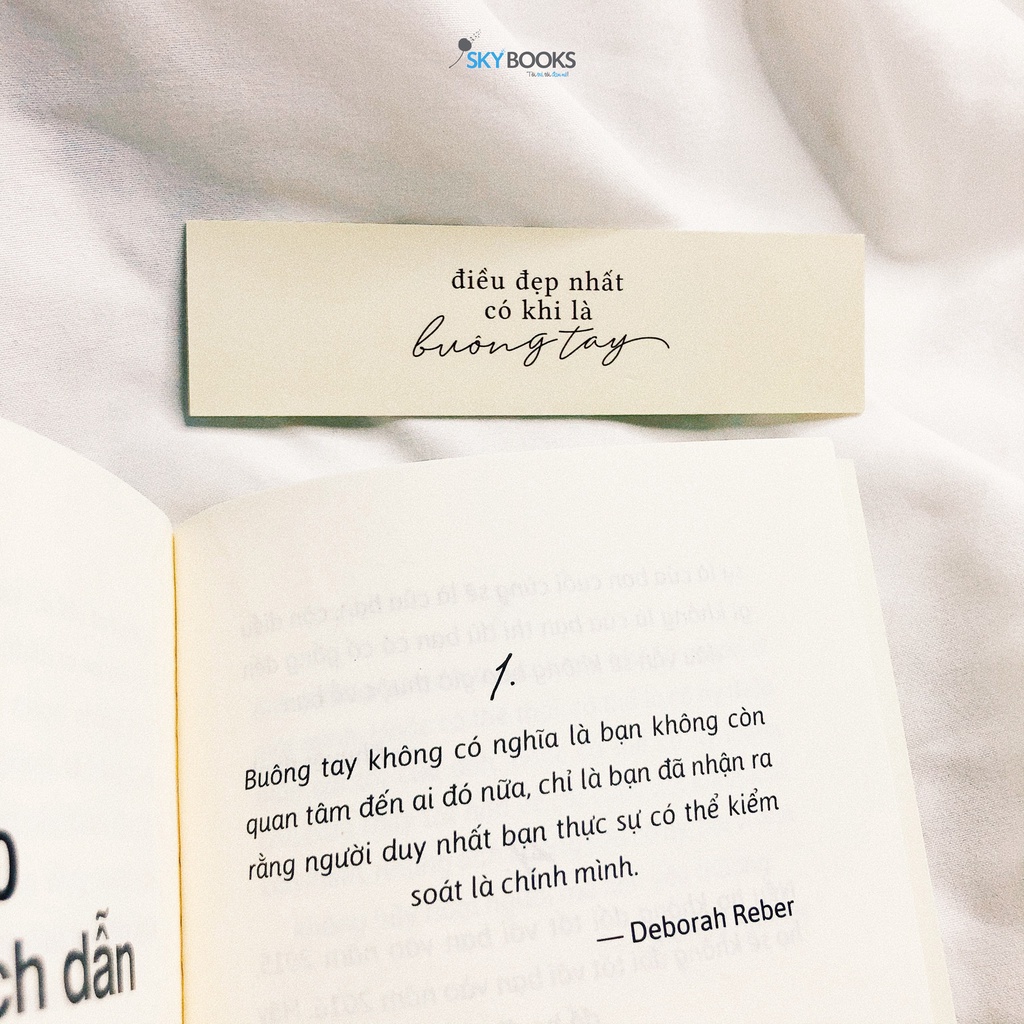 SKYBOOKS
điều đẹp nhất
có khi là
buông tay
1.
Buông tay không có nghĩa là bạn không còn
quan tâm đến ai đó nữa, chỉ là bạn đã nhận ra
rằng người duy nhất bạn thực sự có thể kiểm
soát là chính mình.
— Deborah Reber
ch dẫn